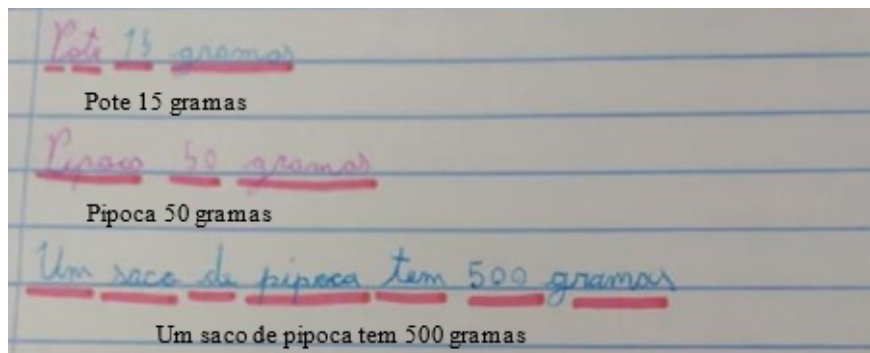 Pote 15 gramas
Pote 15 gramas
Pipoca 50 gramas
Pipoca 50 gramas
Um saco de pipoca tem 500 gramas
Um saco de pipoca tem 500 gramas